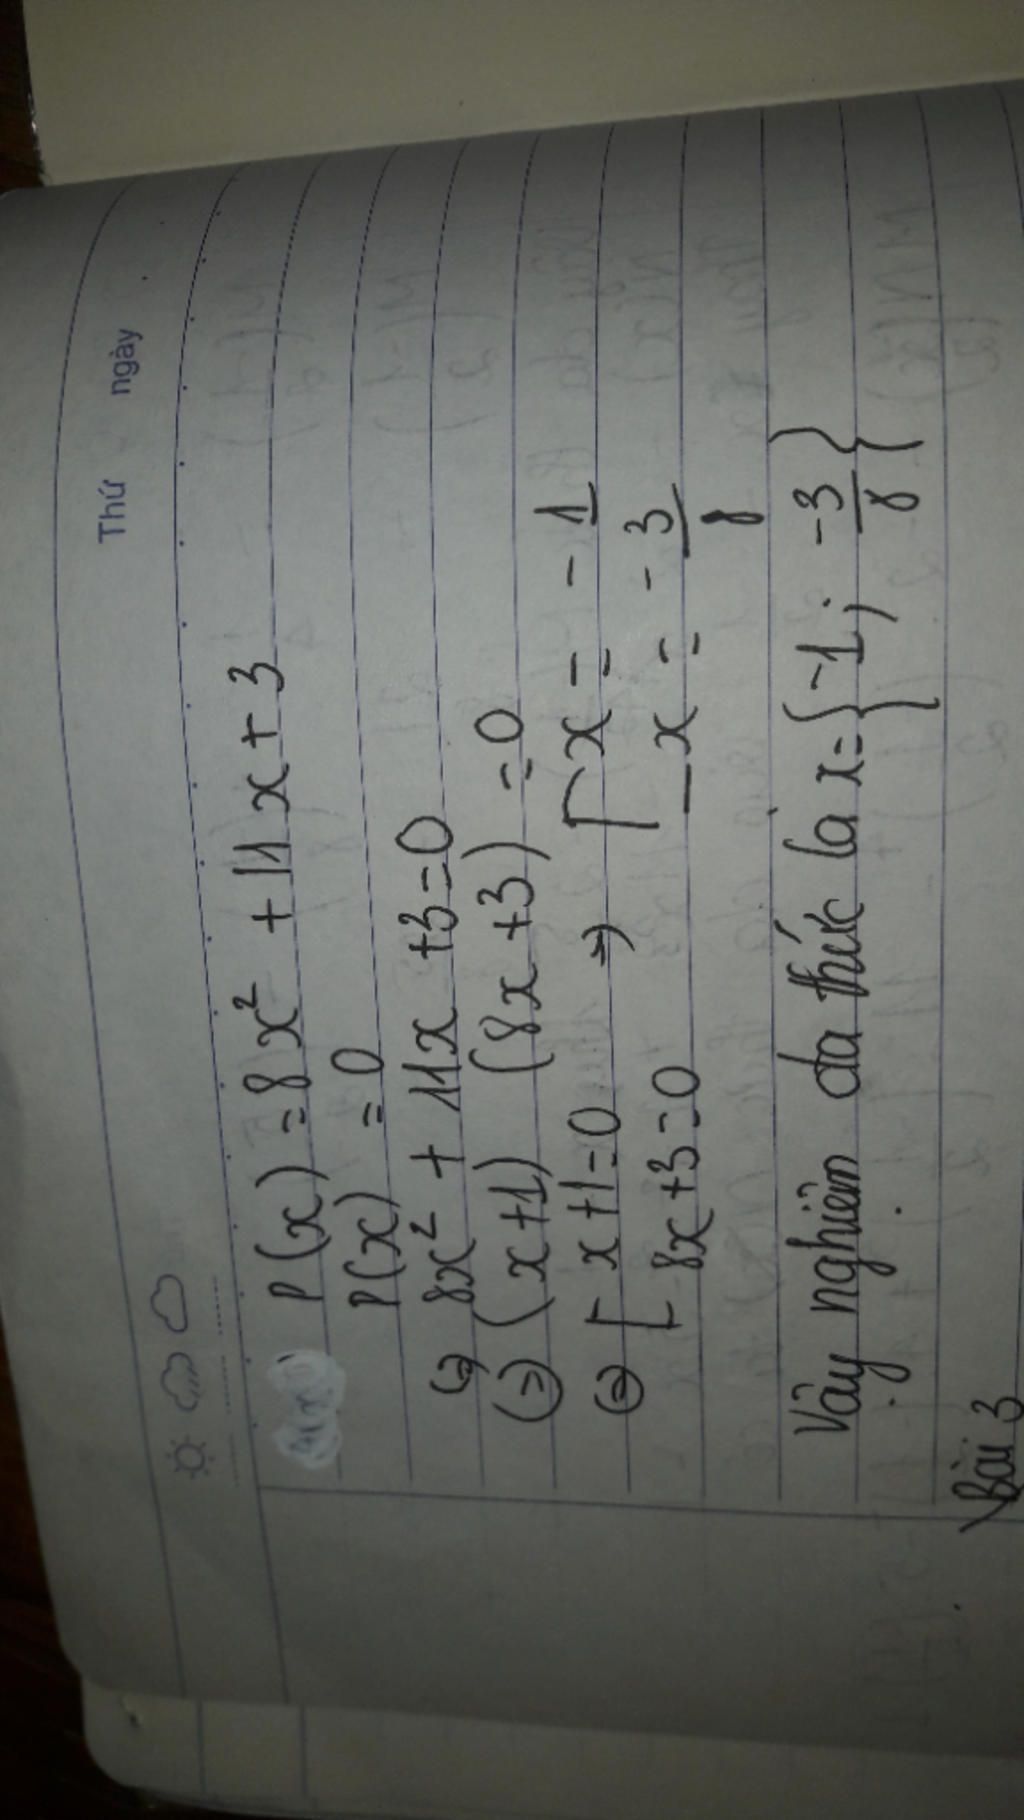 Thứ ngày
P(x) = 8x² + 11x + 3
P(x) = 0
(=) 8x² + 11x + 3 = 0
(=) (x+1) (8x+3) = 0
(=) [ x+1=0 => [ x = -1
[ 8x+3=0 x = -3/8
Vậy nghiệm đa thức là x = {-1; -3/8}
Bài 3